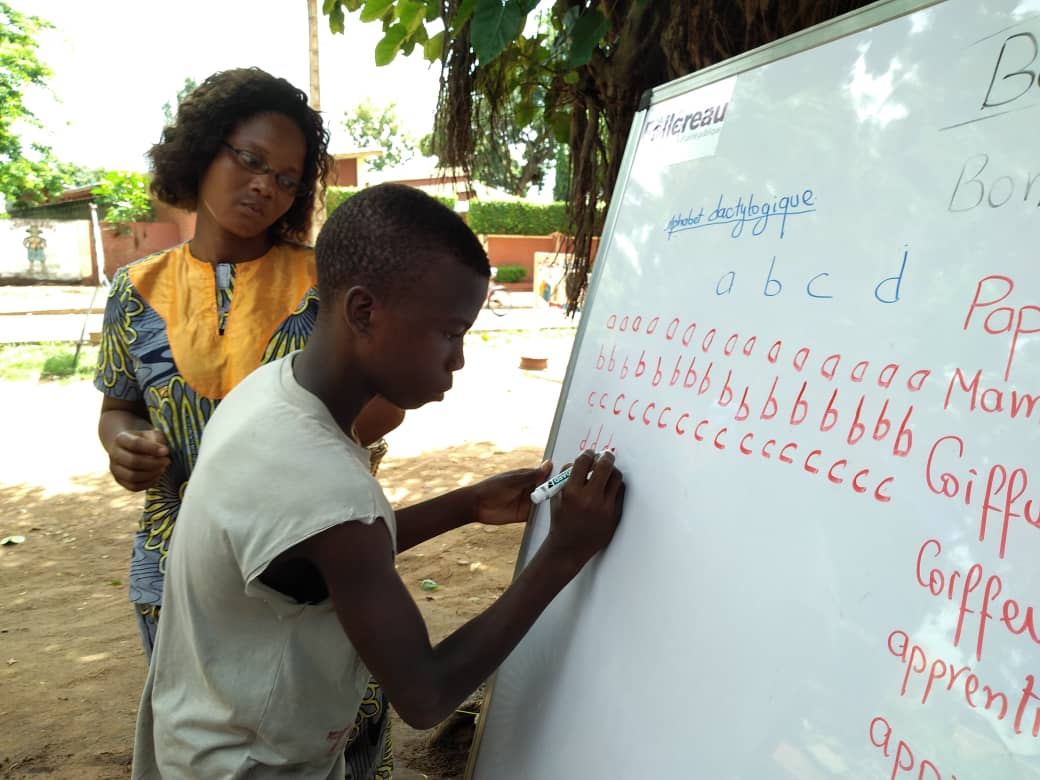 Alphabet dactylogique
a b c d
a a a a a a a a a a a a a a a a
b b b b b b b b b b b b b b b b b b
c c c c c c c c c c c c c c c c c c
d d d
Pap
Mam
Coiffu
Coiffeu
apprenti
app